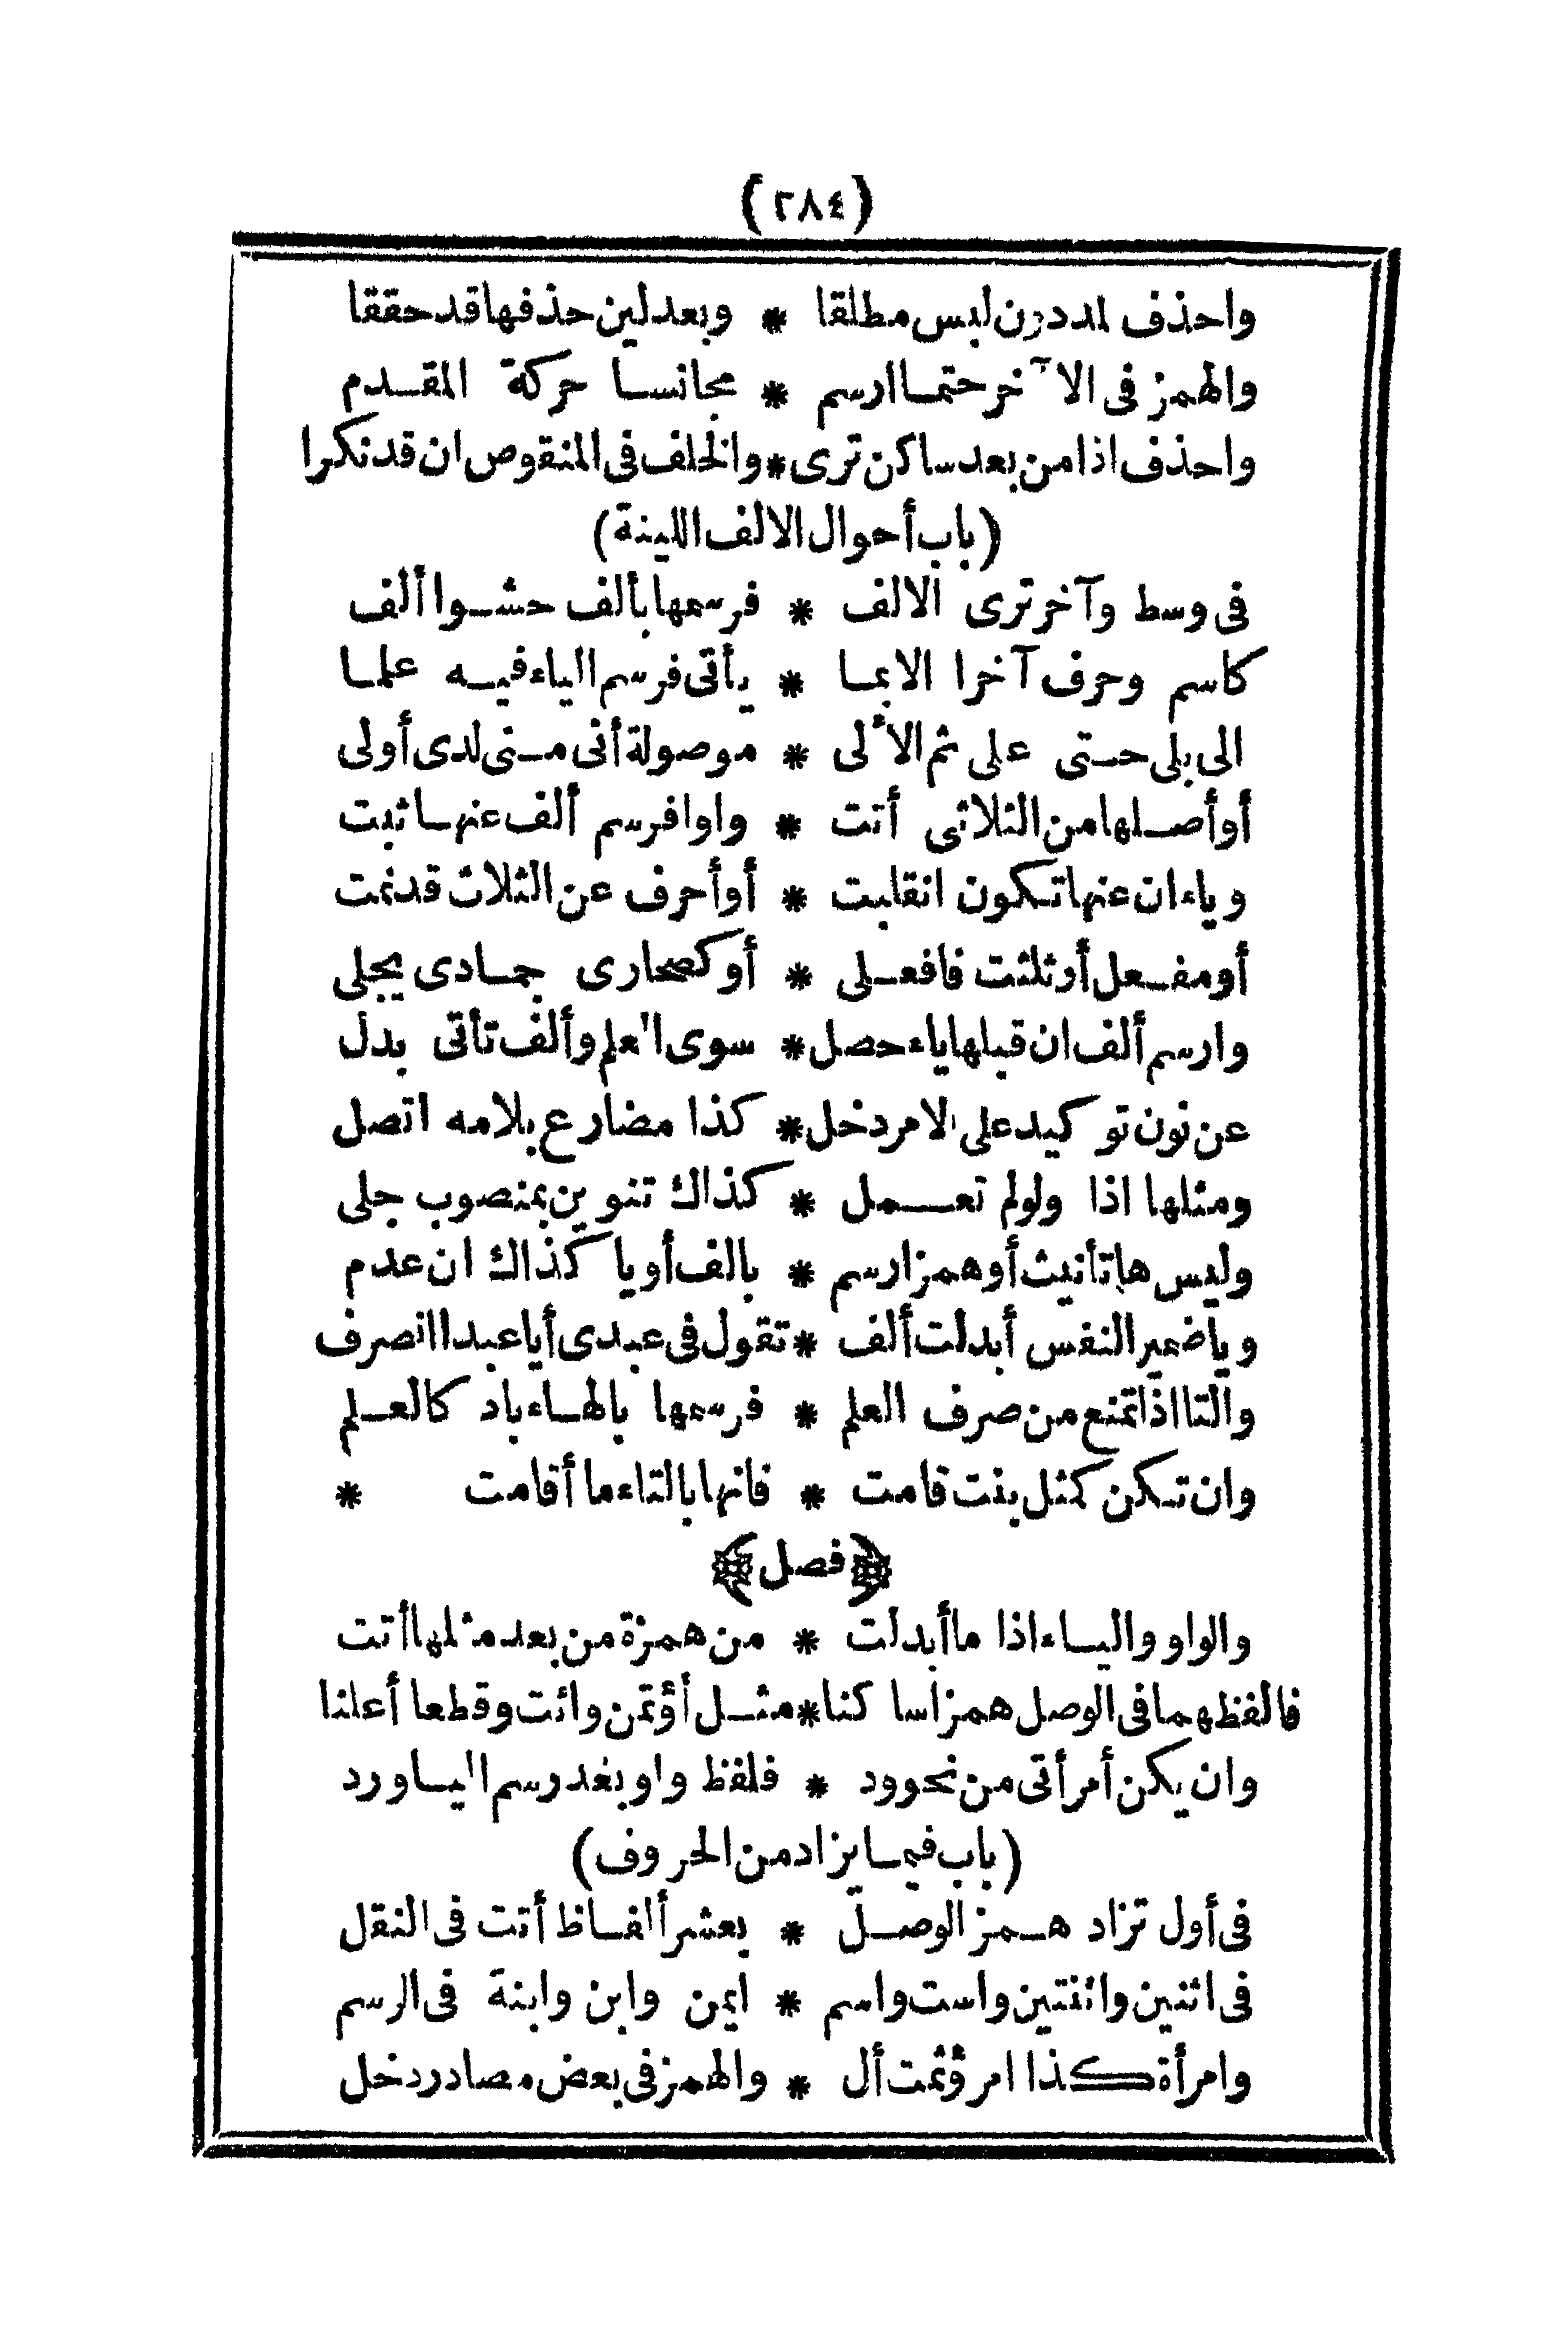 (٢٨٤)
واحذف لمد دون لبس مطلقا * وبعد لين حذفها قد حققا
والهمز فى الآخر حتما ارسم * مجانسا حركة المقدم
واحذف اذا من بعد ساكن ترى * والخلف فى المنقوص ان قد نكرا
(باب أحوال الالف اللينة)
فى وسط وآخر ترى الالف * فرسمها بألف حشوا ألف
كاسم وحرف آخرا الا بما * يأتى فرسم الياء فيه علما
الى بلى حتى على ثم الألى * موصولة أنى متى لدى أولى
أو أصلها من الثلاثى أتت * واوا فرسم ألف عنها ثبت
وياء ان عنها تكون انقلبت * أو أحرف عن الثلاث قد نمت
أو مفعل أو ثلثت فافعلى * أو كصحارى جمادى يجلى
وارسم ألف ان قبلها ياء حصل * سوى العلم وألف تأتى بدل
عن نون توكيد على الامر دخل * كذا مضارع بلامه اتصل
ومثلها اذا ولو لم تعمل * كذاك تنوين بمنصوب جلى
وليس ها تأنيث أو همز ارسم * بالف أو يا كذاك ان عدم
ويا ضمير النفس أبدلت ألف * تقول فى عبدى أيا عبدا انصرف
والتا اذا تمنع من صرف العلم * فرسمها بالهاء باد كالعلم
وان تكن كمثل بنت قامت * فانها بالتاء ما أقامت *
﴿فصل﴾
والواو والياء اذا ما أبدلت * من همزة من بعد مثلها أتت
فالفظ بهما فى الوصل همزا سا كنا * مثل أؤتمن وائت وقطعا أعلنا
وان يكن أمر أتى من نحو ود * فلفظ واو بغد رسم اليا ورد
(باب فيما يزاد من الحروف)
فى أول تزاد همز الوصل * بعشر ألفاظ أتت فى النقل
فى اثنين واثنتين واست واسم * ايمن وابن وابنة فى الرسم
وامرأة كذا امرؤ ثمت أل * والهمز فى بعض مصادر دخل